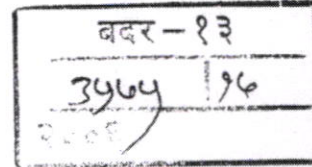 बदर - १३
३५७५ | १७
२००६